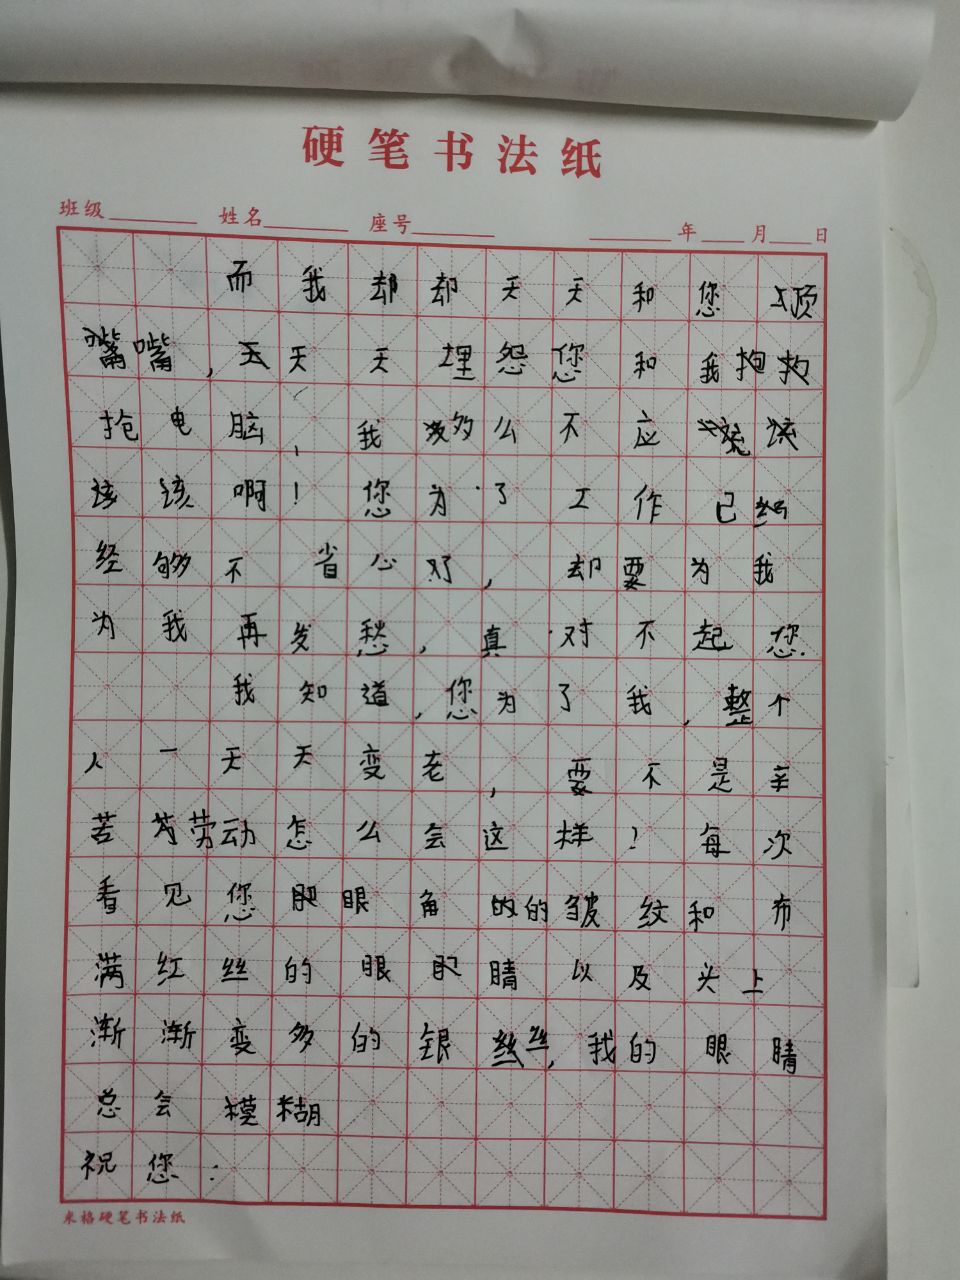 硬笔书法纸
班级 姓名 座号 年 月 日
而我却却天天和您顶
嘴嘴，天天天埋怨您和我抱
抢电脑，我多么不应
该该啊！您为了工作已
经够不省心了，却要为我
为我再发愁，真对不起您.
我知道，您为了我，整个
人一天天变老，要不是辛
苦为劳动怎么会这样！每次
看见您眼角的的皱纹和布
满红丝的眼睛以及头上
渐渐变多的银丝丝，我的眼睛
总会模糊
祝您：
米格硬笔书法纸